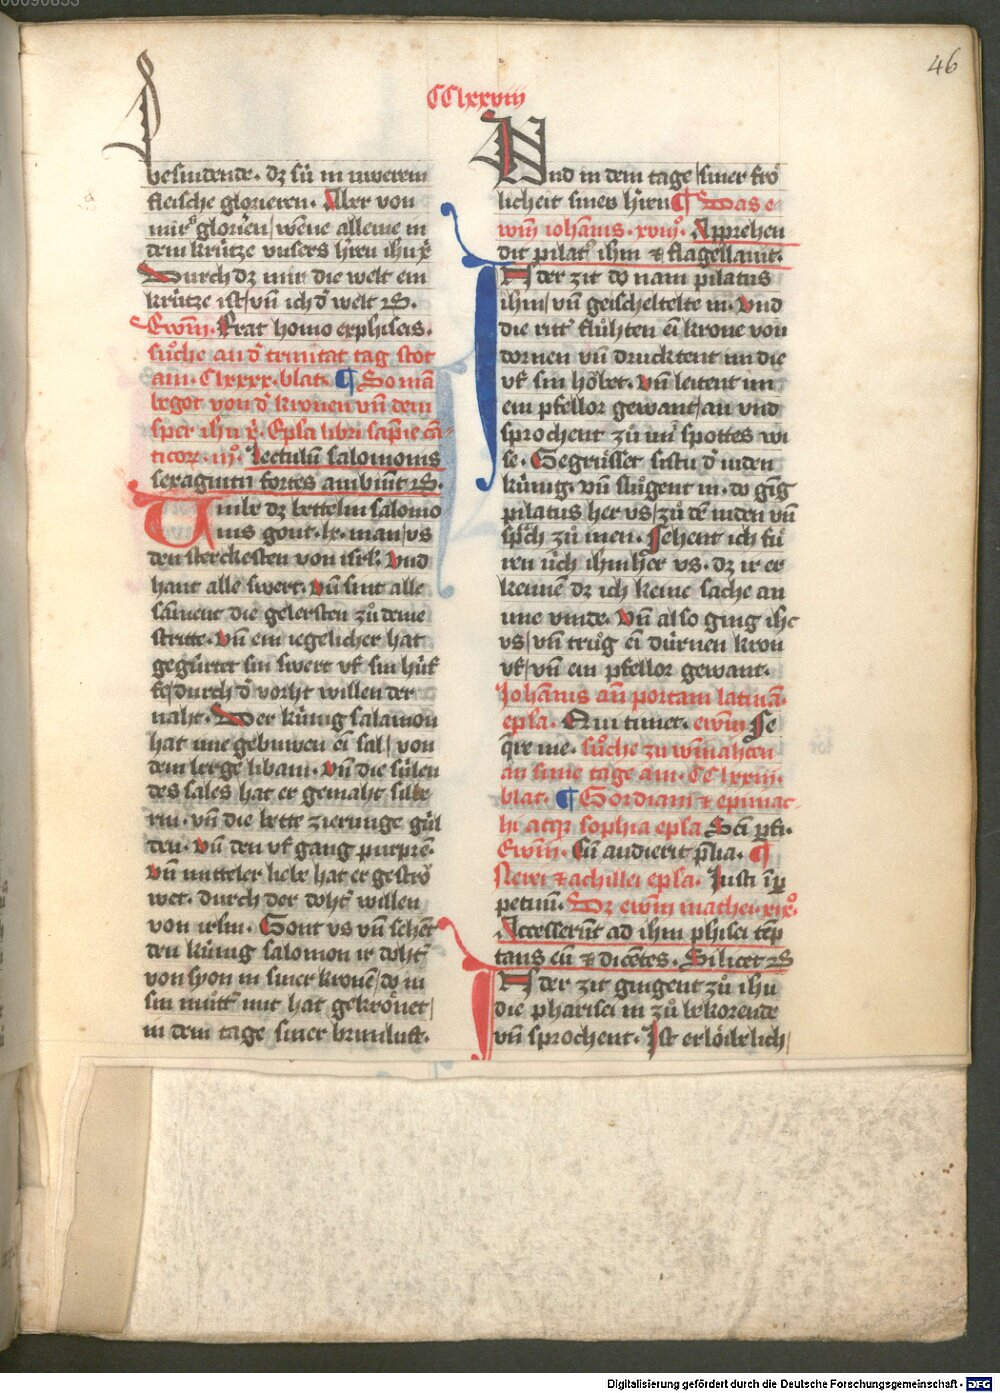 46
CClxxviij
besindende. dz sü in uwerem
fleische glorieren. Aber von
mir glorien / wenne alleine in
dem krütze unsers h̄ren ih̄u xp̄i
Durch dz mir die welt ein
krütze ist / vn̄ ich d' welt ꝛc.
Ewm̄. Erat homo ex phiseis.
sůche an d' trinitat tag stot
am. Clxxxx. blat. ¶ So man
begot von d' kronen vn̄ dem
sper ih̄u xp̄i. Ep̄la libri sapie cā-
ticoꝝ. iijº. Lectulū salomonis
sexaginta fortes ambiūt ꝛc.
Umbe dz bettelin salomo
nis gont. lx. man / us
den stercksten von isrl̄. Und
hant alle swert. Vn̄ sint alle
sament die gelersten zů deme
stritte. Vn̄ ein iegelicher hat
gegürtet sin swert uf sin hüf
fe / durch d' vorht willen der
naht. Der künig salamon
hat ime gebuwen ei sal / von
dem berge libani. Vn̄ die sülen
des sales hat er gemaht silbe
rin. vn̄ die bette zierunge gül
den. Vn̄ den uf gang purpre.
Vn̄ mitteler liebe hat er geströ
wet. durch der doht' willen
von irlm̄. Gont us vn̄ sehent
den künig salomon ir doht'
von syon in siner krone / do in
sin můtt' mit hat gekrönet /
in dem tage siner brunluft.
Und in dem tage / siner frö
licheit sines hertzen ¶ Das e-
wm̄ iohānis. xviijº. Apprehen
dit pilat' ih̄m ⁊ flagellauit.
IN der zit do nam pilatus
ih̄m / vn̄ geischeltete in. Und
die ritt' fluhten ei krone von
dornen vn̄ drucktent im die
uf sin höbet. Vn̄ leitent im
ein pfellor gewant / an und
sprochent zů im spottes wi
se. Gegrüsset sistu d' iuden
künig. vn̄ slugent in. do ging
pilatus her us / zů dē iuden vn̄
sp̄ch zů inen. Sehent ich fü
ren üch ih̄m her us. dz ir er
kennē dz ich keine sache an
ime vinde. Vn̄ also ging ih̄c
us / vn̄ trůg ei dürnen kron
uf / vn̄ ein pfellor gewant.
Johānis an̄ portam latinā.
epl̄a. Qui timet. ewm̄ Se
q̄re me. sůche zu winahten
an sime tage am. CClxxiij.
blat. ¶ Gordiani ⁊ epimac-
hi atq̄ꝫ sophia epl̄a Sc̄i p̄ fi.
Ewm̄. Cū audieritis p̄lia. ¶
Nerei ⁊ achillei epl̄a. Justi īp̄
petuū. Dz ewm̄ mathei. xixº.
Accesserūt ad ih̄m phisei tēp
tans eū ⁊ dicētes. Si licet ꝛc
IN der zit gingent zů ih̄u
die pharisei in zů bekorende
vn̄ sprochent. Ist erlöibelich /
Digitalisierung gefördert durch die Deutsche Forschungsgemeinschaft - DFG